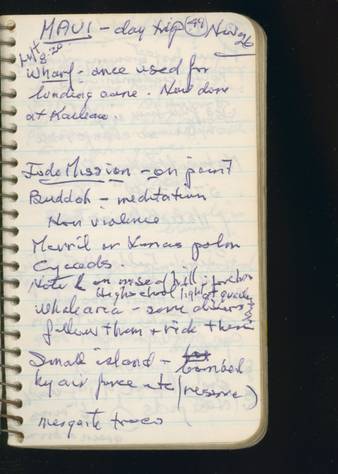 MAUI - day trip Nov 26
Left 8:20
Wharf - once used for
landing cane. Now done
at
Jodo Mission - on point
Buddah - meditation
Non violence
Merril or Xmas palm
Cycads.
Note on side of hill
High school
Whale area - some divers
follow them & ride them
Small island - bombed
by air force etc (reserve)
mesquite trees